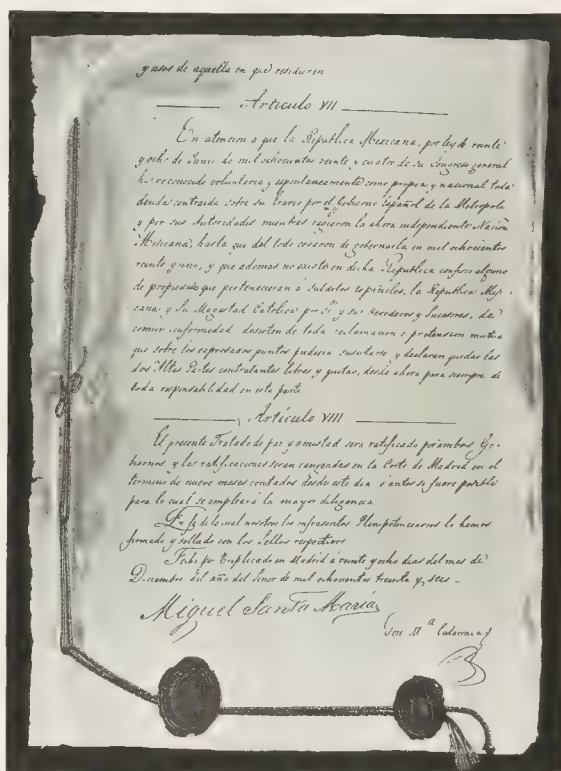 y usos de aquella en que residieren
Artículo VII
En atencion a que la República Mexicana, por ley de veinte
y ocho de Junio de mil ochocientos veinte y cuatro de su Congreso general
ha reconocido voluntaria y espontaneamente como propia y nacional toda
deuda contraida sobre su Erario por el Gobierno Español de la Metropoli
y por sus Autoridades mientras rigieron la ahora independiente Nación
Mexicana, hasta que del todo cesaron de gobernarla en mil ochocientos
veinte y uno, y que ademas no existe en dicha República confisco alguno
de propiedades que pertenecieran a Subditos españoles, la República Meji-
cana, y Su Magestad Católica por Sí y sus Herederos y Sucesores, de
comun conformidad desisten de toda reclamacion o pretension mutua
que sobre los expresados puntos pudiera suscitarse, y declaran quedar las
dos Altas Partes contratantes libres y quitas, desde ahora para siempre de
toda responsabilidad en esta parte
Artículo VIII
El presente Tratado de paz y amistad será ratificado por ambos Go-
biernos y las ratificaciones serán cangeadas en la Corte de Madrid en el
término de nueve meses contados desde este dia ó antes si fuere posible
para lo cual se empleará la mayor diligencia
En fé de lo cual nosotros los infrascritos Plenipotenciarios lo hemos
firmado y sellado con los Sellos respectivos
Fecho por triplicado en Madrid á veinte y ocho dias del mes de
Diciembre del año del Señor de mil ochocientos treinta y seis
Miguel Santa María
José Mª Calatrava